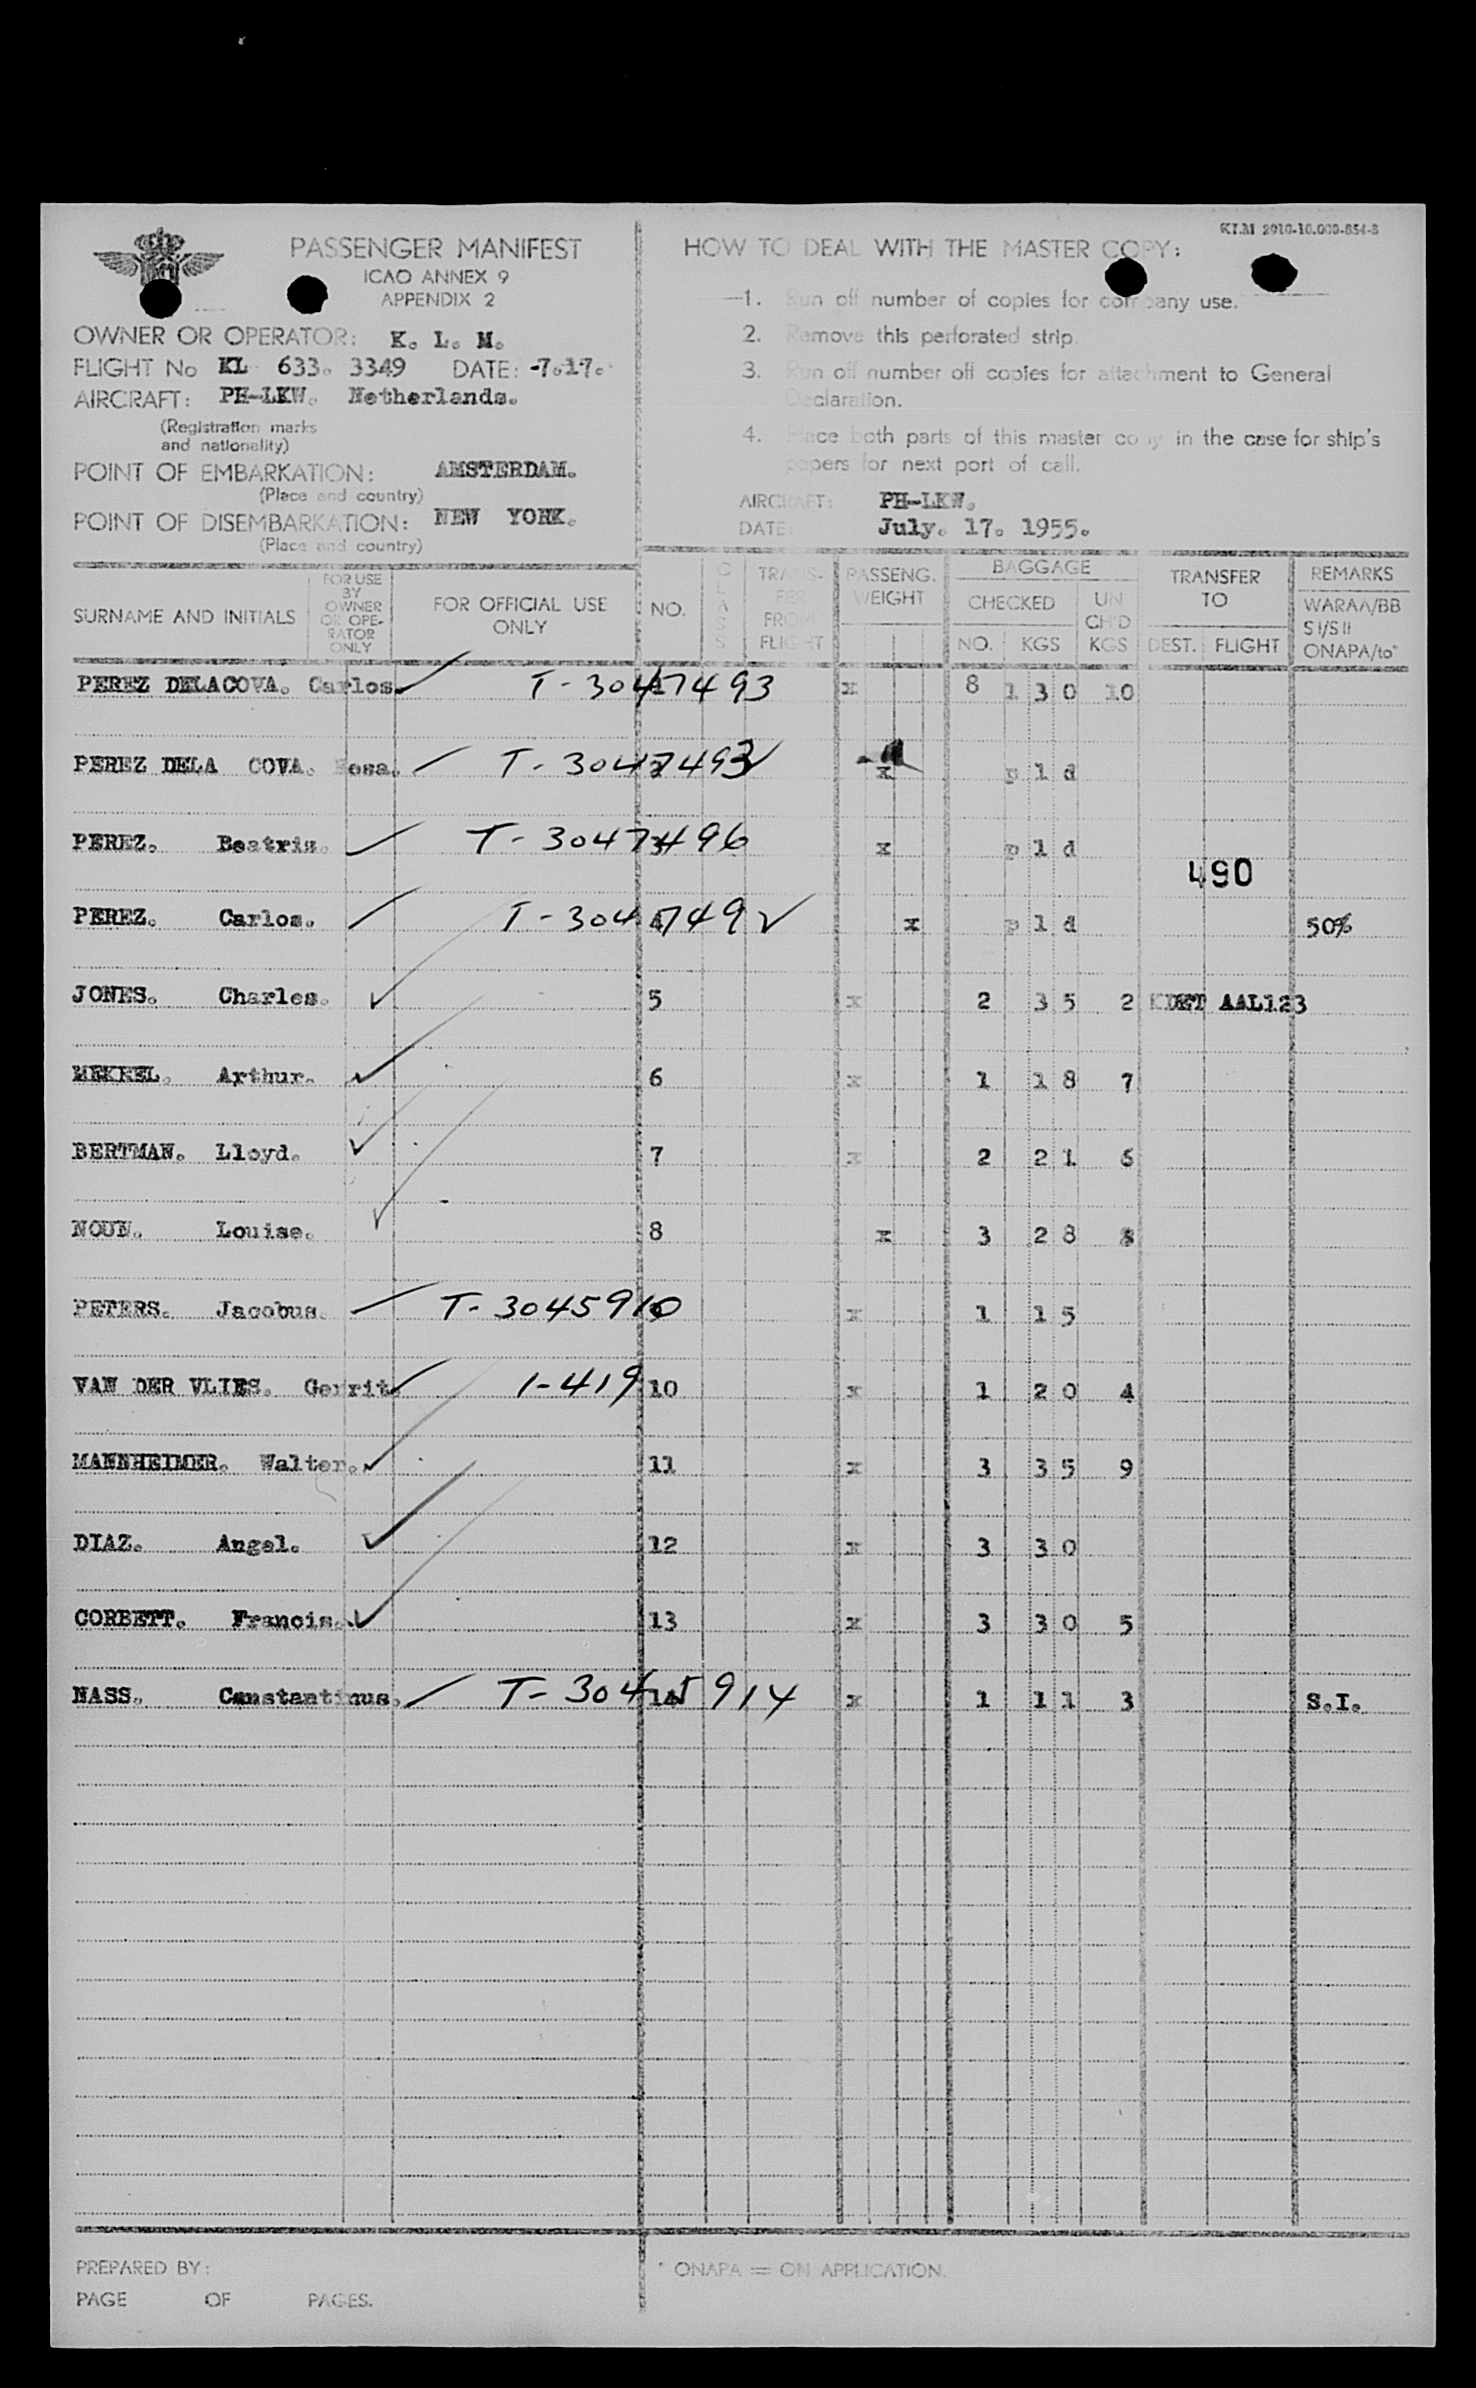 KLM 2910-10.000-854-S
PASSENGER MANIFEST
ICAO ANNEX 9
APPENDIX 2
OWNER OR OPERATOR: K. L. M.
FLIGHT No KL 633. 3349 DATE: -7.17.
AIRCRAFT: PH-LKW. Netherlands.
(Registration marks
and nationality)
POINT OF EMBARKATION: AMSTERDAM.
(Place and country)
POINT OF DISEMBARKATION: NEW YORK.
(Place and country)
HOW TO DEAL WITH THE MASTER COPY:
1. Run off number of copies for company use.
2. Remove this perforated strip.
3. Run off number off copies for attachment to General
Declaration.
4. Place both parts of this master copy in the case for ship's
papers for next port of call.
AIRCRAFT: PH-LKW.
DATE: July. 17. 1955.
SURNAME AND INITIALS
FOR USE
BY
OWNER
OR OPE-
RATOR
ONLY
FOR OFFICIAL USE
ONLY
NO.
CLASS
TRANS-
FER
FROM
FLIGHT
PASSENG.
WEIGHT
BAGGAGE
CHECKED
NO. KGS
UN
CH'D
KGS
TRANSFER
TO
DEST. FLIGHT
REMARKS
WARAA/BB
S I/S II
ONAPA/to*
PEREZ DELACOVA. Carlos T-3047493 x 8 130 10
PEREZ DELA COVA. Rosa. T-3047493 x pld
PEREZ. Beatris. T-3047496 x pld
490
PEREZ. Carlos. T-304749 x pld 50%
JONES. Charles. 5 x 2 35 2 KDET AAL123
MEKREL. Arthur. 6 x 1 18 7
BERTMAN. Lloyd. 7 x 2 21 6
NOUN. Louise. 8 x 3 28 8
PETERS. Jacobus. T-3045910 x 1 15
VAN DER VLIES. Gerrit 1-419 10 x 1 20 4
MANNHEIMER. Walter. 11 x 3 35 9
DIAZ. Angel. 12 x 3 30
CORBETT. Francis. 13 x 3 30 5
NASS. Constantinus. T-3045914 14 x 1 11 3 S.I.
PREPARED BY:
PAGE OF PAGES.
* ONAPA = ON APPLICATION.